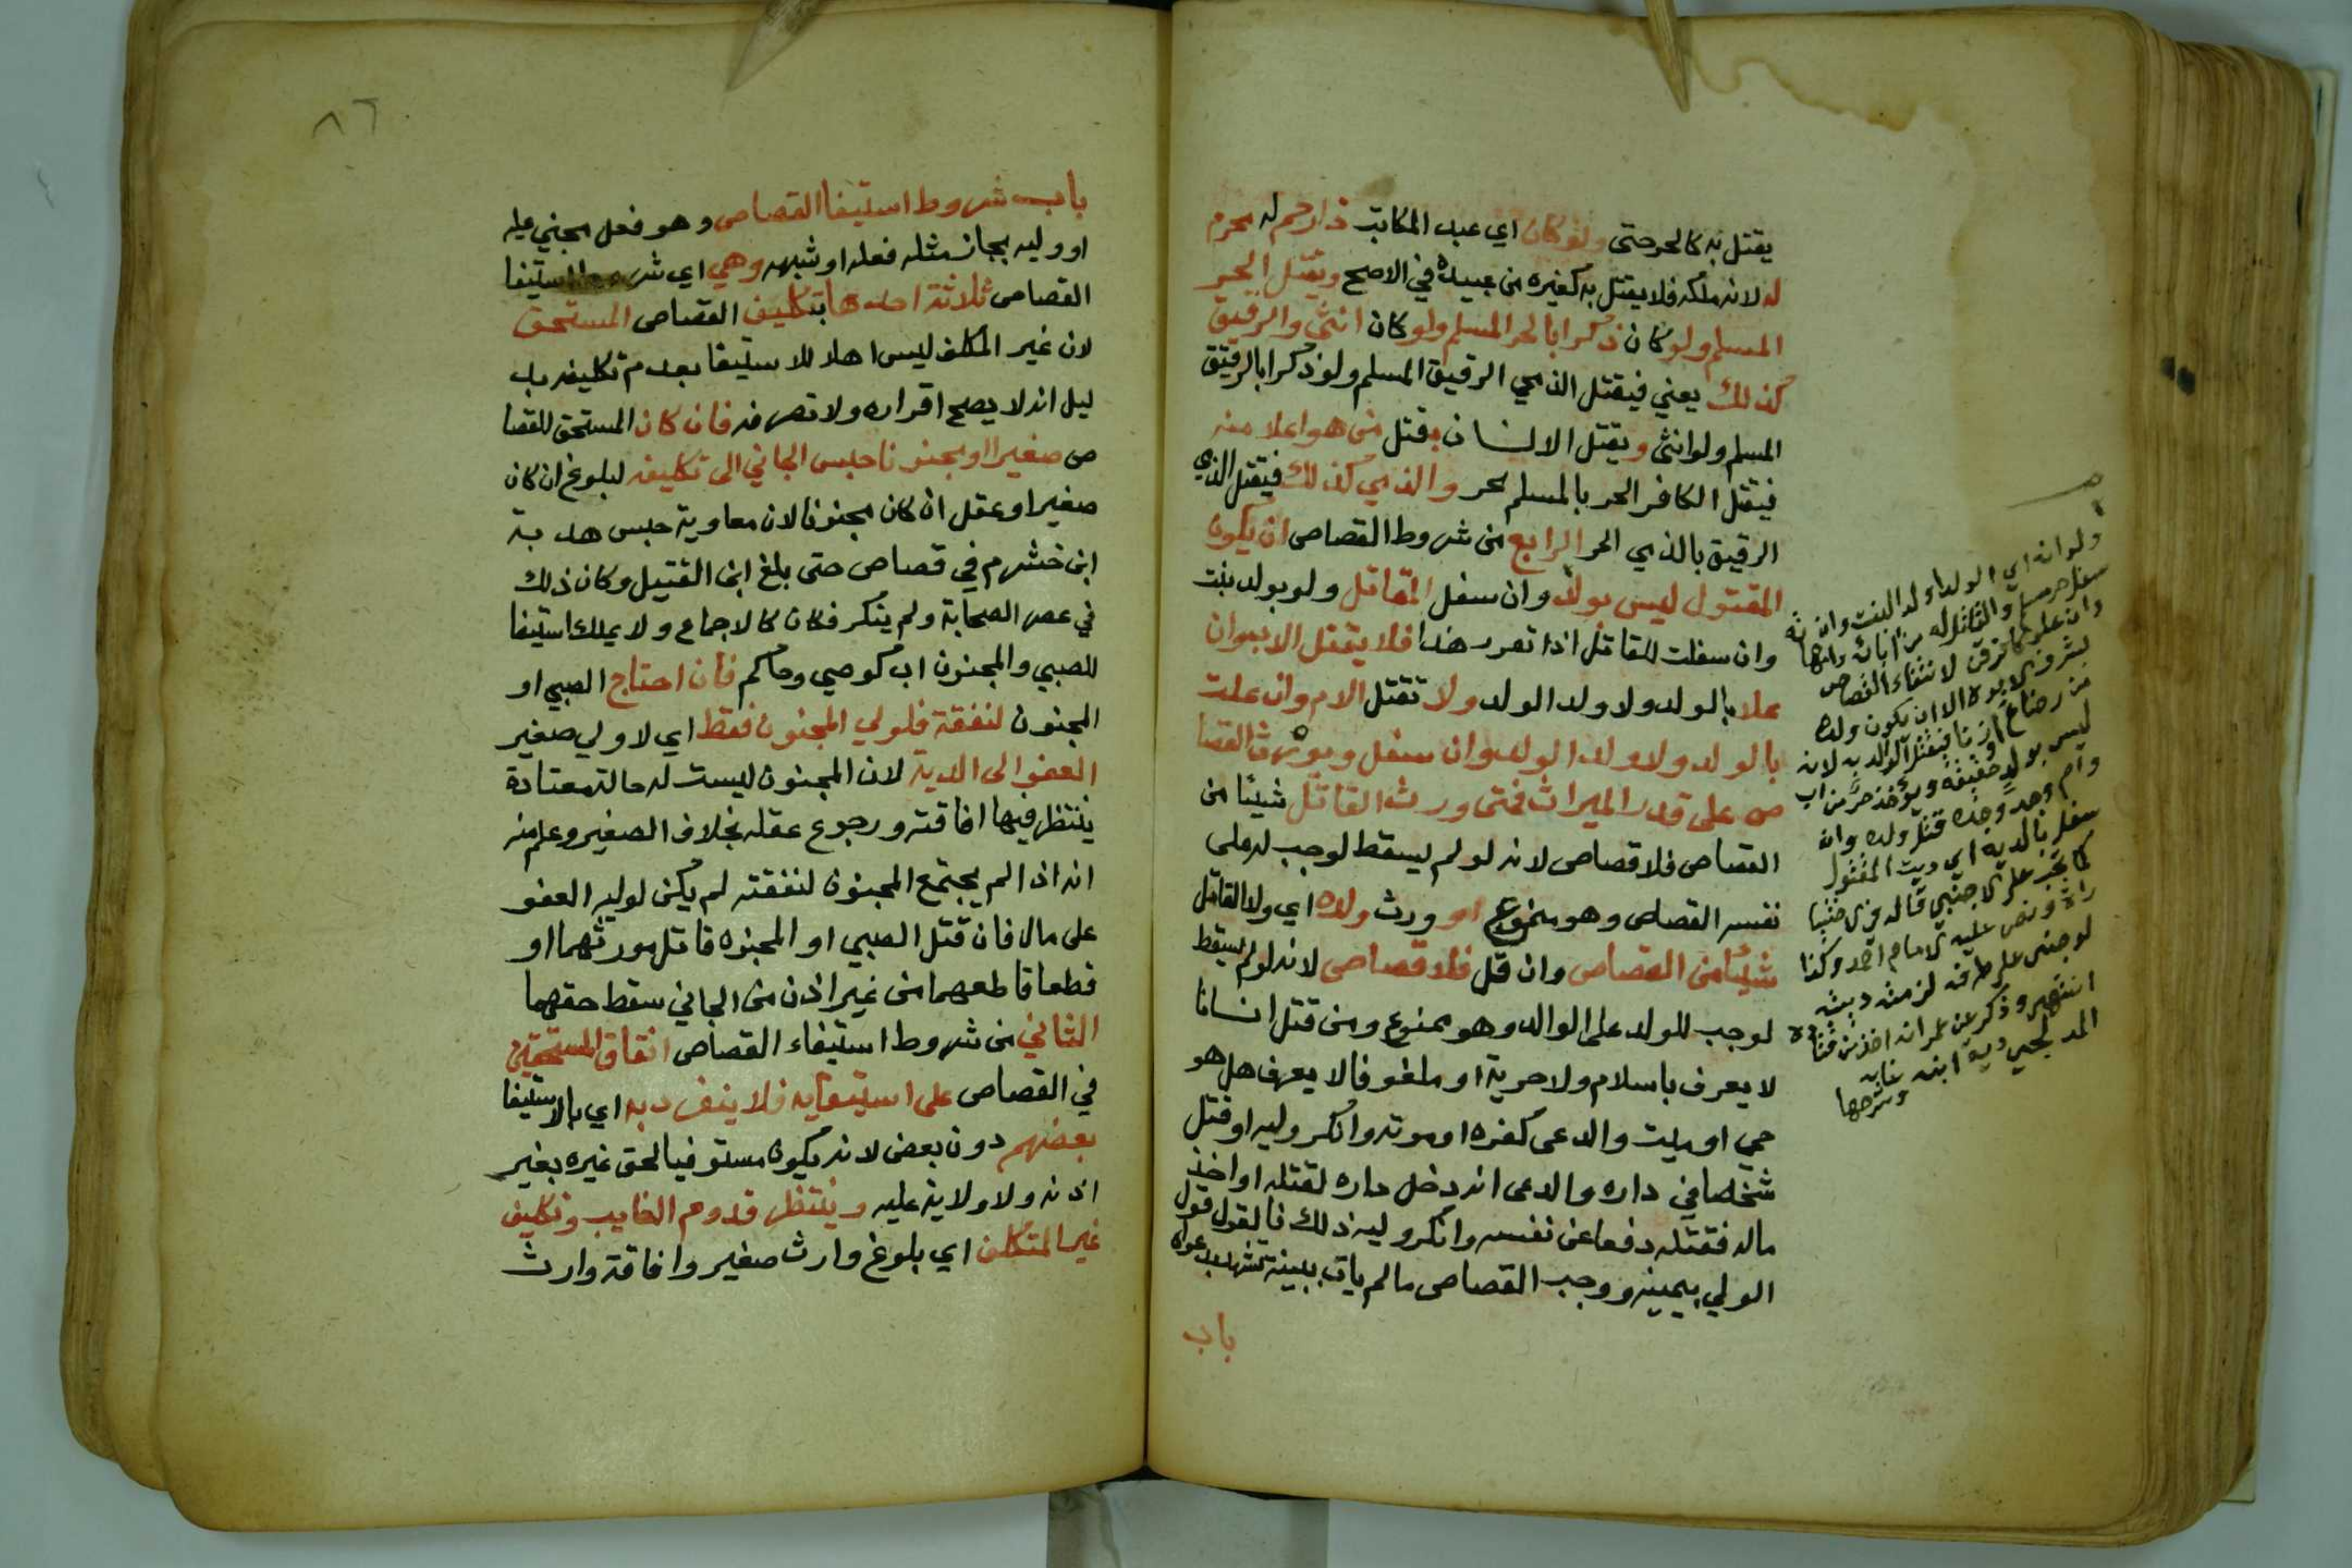 يقتل به كالحر حتى ولو كان اي عبد المكاتب ذا رحم له محرم
له لانه ملكه فلا يقتل به كغيره من عبيده في الاصح ويقتل الحر
المسلم ولو كان ذكرا بالحر المسلم ولو كان انثى والرقيق
كذلك يعني فيقتل الذمي الرقيق المسلم ولو ذكرا بالرقيق
المسلم ولو انثى ويقتل الانسان بقتل من هو اعلا منه
فيقتل الكافر الحر بالمسلم حر والذمي كذلك فيقتل الذي
الرقيق بالذمي الحر الرابع من شروط القصاص ان يكون
المقتول ليس بولد وان سفل القاتل ولو بولد بنت
وان سفلت للقاتل اذا تقرر هذا فلا يقتل الاب وان
علا بالولد ولا ولد الولد ولا تقتل الام وان علت
بالولد ولا ولد الولد وان سفل ويورث القصا
ص على قدر الميراث فمتى ورث القاتل شيئا من
القصاص فلا قصاص لانه لو لم يسقط لوجب له على
نفسه القصاص وهو ممنوع او ورث ولده اي ولد القاتل
شيئا من القصاص وان قل فلا قصاص لانه لو لم يسقط
لوجب للولد على الوالد وهو ممنوع ومن قتل انسانا
لا يعرف باسلام ولا حرية او ملفوفا لا يعرف هل هو
حي او ميت والدعى كفره او موته وانكر وليه او قتل
شخصا في داره والدعى انه دخل داره لقتله او اخذ
ماله فقتله دفعا عن نفسه وانكر وليه ذلك فالقول قول
الولي بيمينه ووجب القصاص ما لم يات ببينة تشهد بدعواه
باب
ولو انه اي الولد او ولد البنت وان
سفل حر مسلم والقاتل له من آبائه وامهاته
وان علو كافر قن لانتفاء القصاص
لشرف الابوة الا ان يكون ولده
من رضاع او زنا فيقتل الوالد به لانه
ليس بولد حقيقة ويؤخذ حر من اب
وام وجد وجدة قتل ولده وان
سفل بالدية اي دية المقتول
كما تجب على الاجنبي قاله في
ونص عليه الامام احمد وكذا
لو جنى على طرفه لزمته ديته
انتهى وذكر عن عمر انه اخذ من قتادة
المدلجي دية ابنه غاية وشرحها
٨٦
باب شروط استيفا القصاص وهو فعل مجني عليه
او وليه بجان مثل فعله او شبهه وهي اي شروط استيفا
القصاص ثلاثة احدها تكليف القصاص المستحق
لان غير المكلف ليس اهلا للاستيفا بعدم تكليفه بد
ليل انه لا يصح اقراره ولا تصرفه فان كان المستحق للقصا
ص صغيرا او مجنونا حبس الجاني الى تكليفه لبلوغ ان كان
صغيرا او عقل ان كان مجنونا لان معاوية حبس هدبة
ابن خشرم في قصاص حتى بلغ ابن القتيل وكان ذلك
في عصر الصحابة ولم ينكر فكان كالاجماع ولا يملك استيفا
للصبي والمجنون اب كوصي وحاكم فان احتاج الصبي او
المجنون لنفقة فلولي المجنون فقط اي لا ولي صغير
العفو الى الدية لان المجنون ليست له حالة معتادة
ينتظر فيها افاقته ورجوع عقله بخلاف الصغير وعلم منه
انه اذا لم يحتج المجنون لنفقته لم يكن لوليه العفو
على مال فان قتل الصبي او المجنون قاتل مورثهما او
قطعا قاطعهما من غير اذن من الجاني سقط حقهما
الثاني من شروط استيفاء القصاص اتفاق المستحقين
في القصاص على استيفايه فلا ينفرد به اي بالاستيفا
بعضهم دون بعض لانه يكون مستوفيا لحق غيره بغير
اذنه ولا ولاية عليه وينتظر قدوم الغايب وتكليف
غير المتكلف اي بلوغ وارث صغير وافاقة وارث